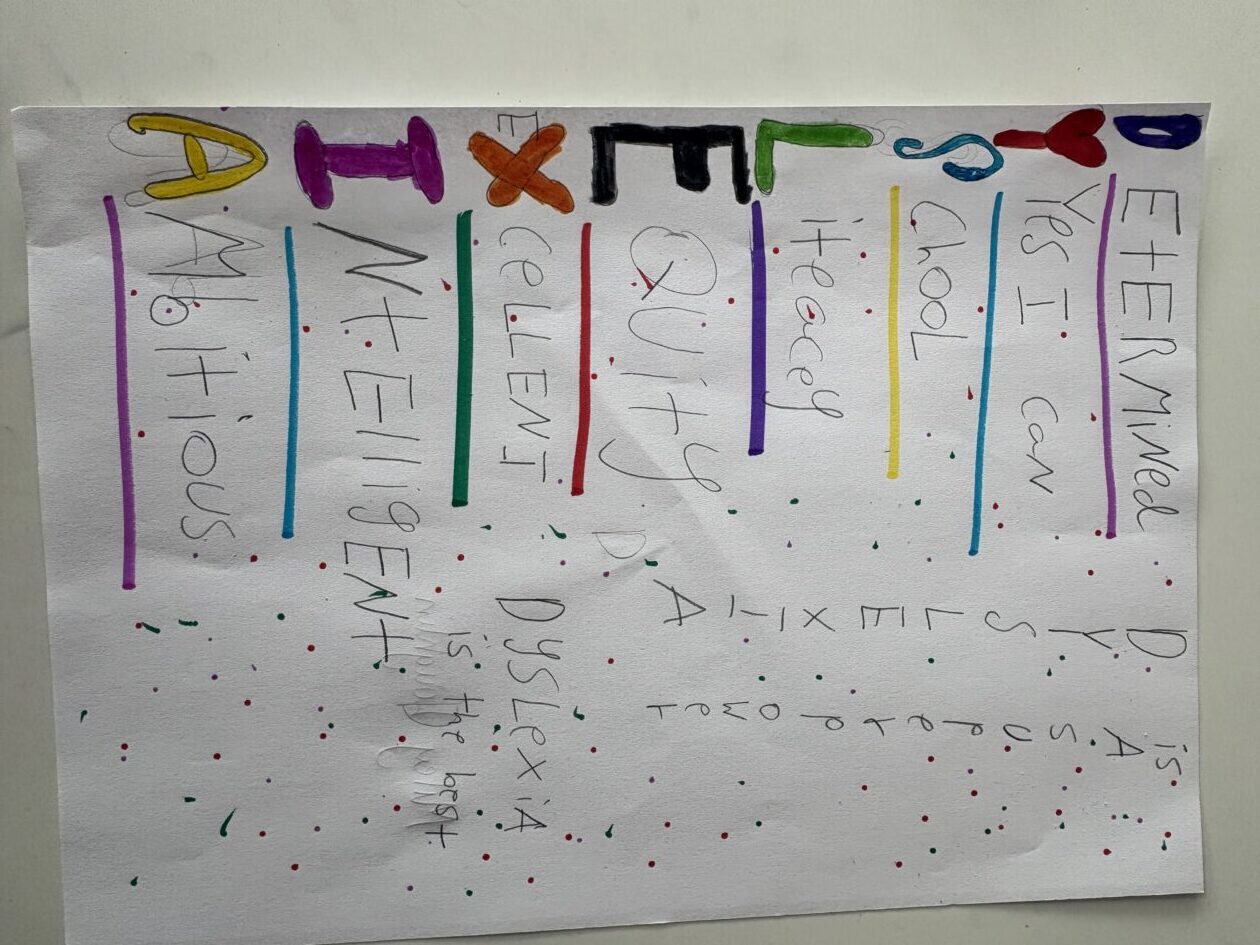 DEtERMiNed
Yes I can
SchooL
Liteacy
EQUity
EXCeLLENT
INtElligENt
AMbitioUs
D
Y
S
L
E
X
I
A
is
A
s
u
p
e
r
p
o
w
e
r
D
DysLexiA
is the best